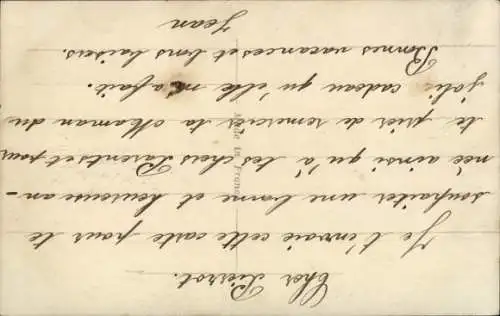 Cher Pierrot.
Je t'envoie cette carte pour te
souhaiter une bonne et heureuse an-
née ainsi qu'à tes chers Parents et pour
te prier de remercier ta Maman du
joli cadeau qu'elle m'a fait.
Bonnes vacances et bons baisers.
Jean